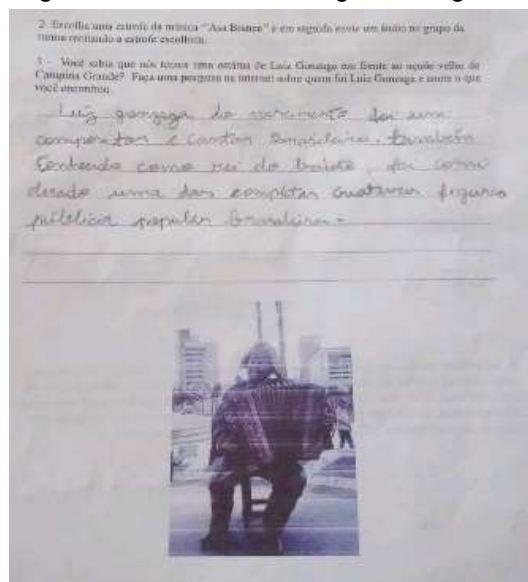 2- Escolha uma estrofe da música "Asa Branca" e em seguida envie um áudio no grupo da
turma recitando a estrofe escolhida.
3 - Você sabia que nós temos uma estátua de Luiz Gonzaga em frente ao açude velho de
Campina Grande? Faça uma pesquisa na internet sobre quem foi Luiz Gonzaga e anote o que
você encontrou
Luiz gonzaga do nascimento foi um
compositor e cantor brasileiro. também
como rei do baião, foi consi
derado uma das figuras
popular brasileira.